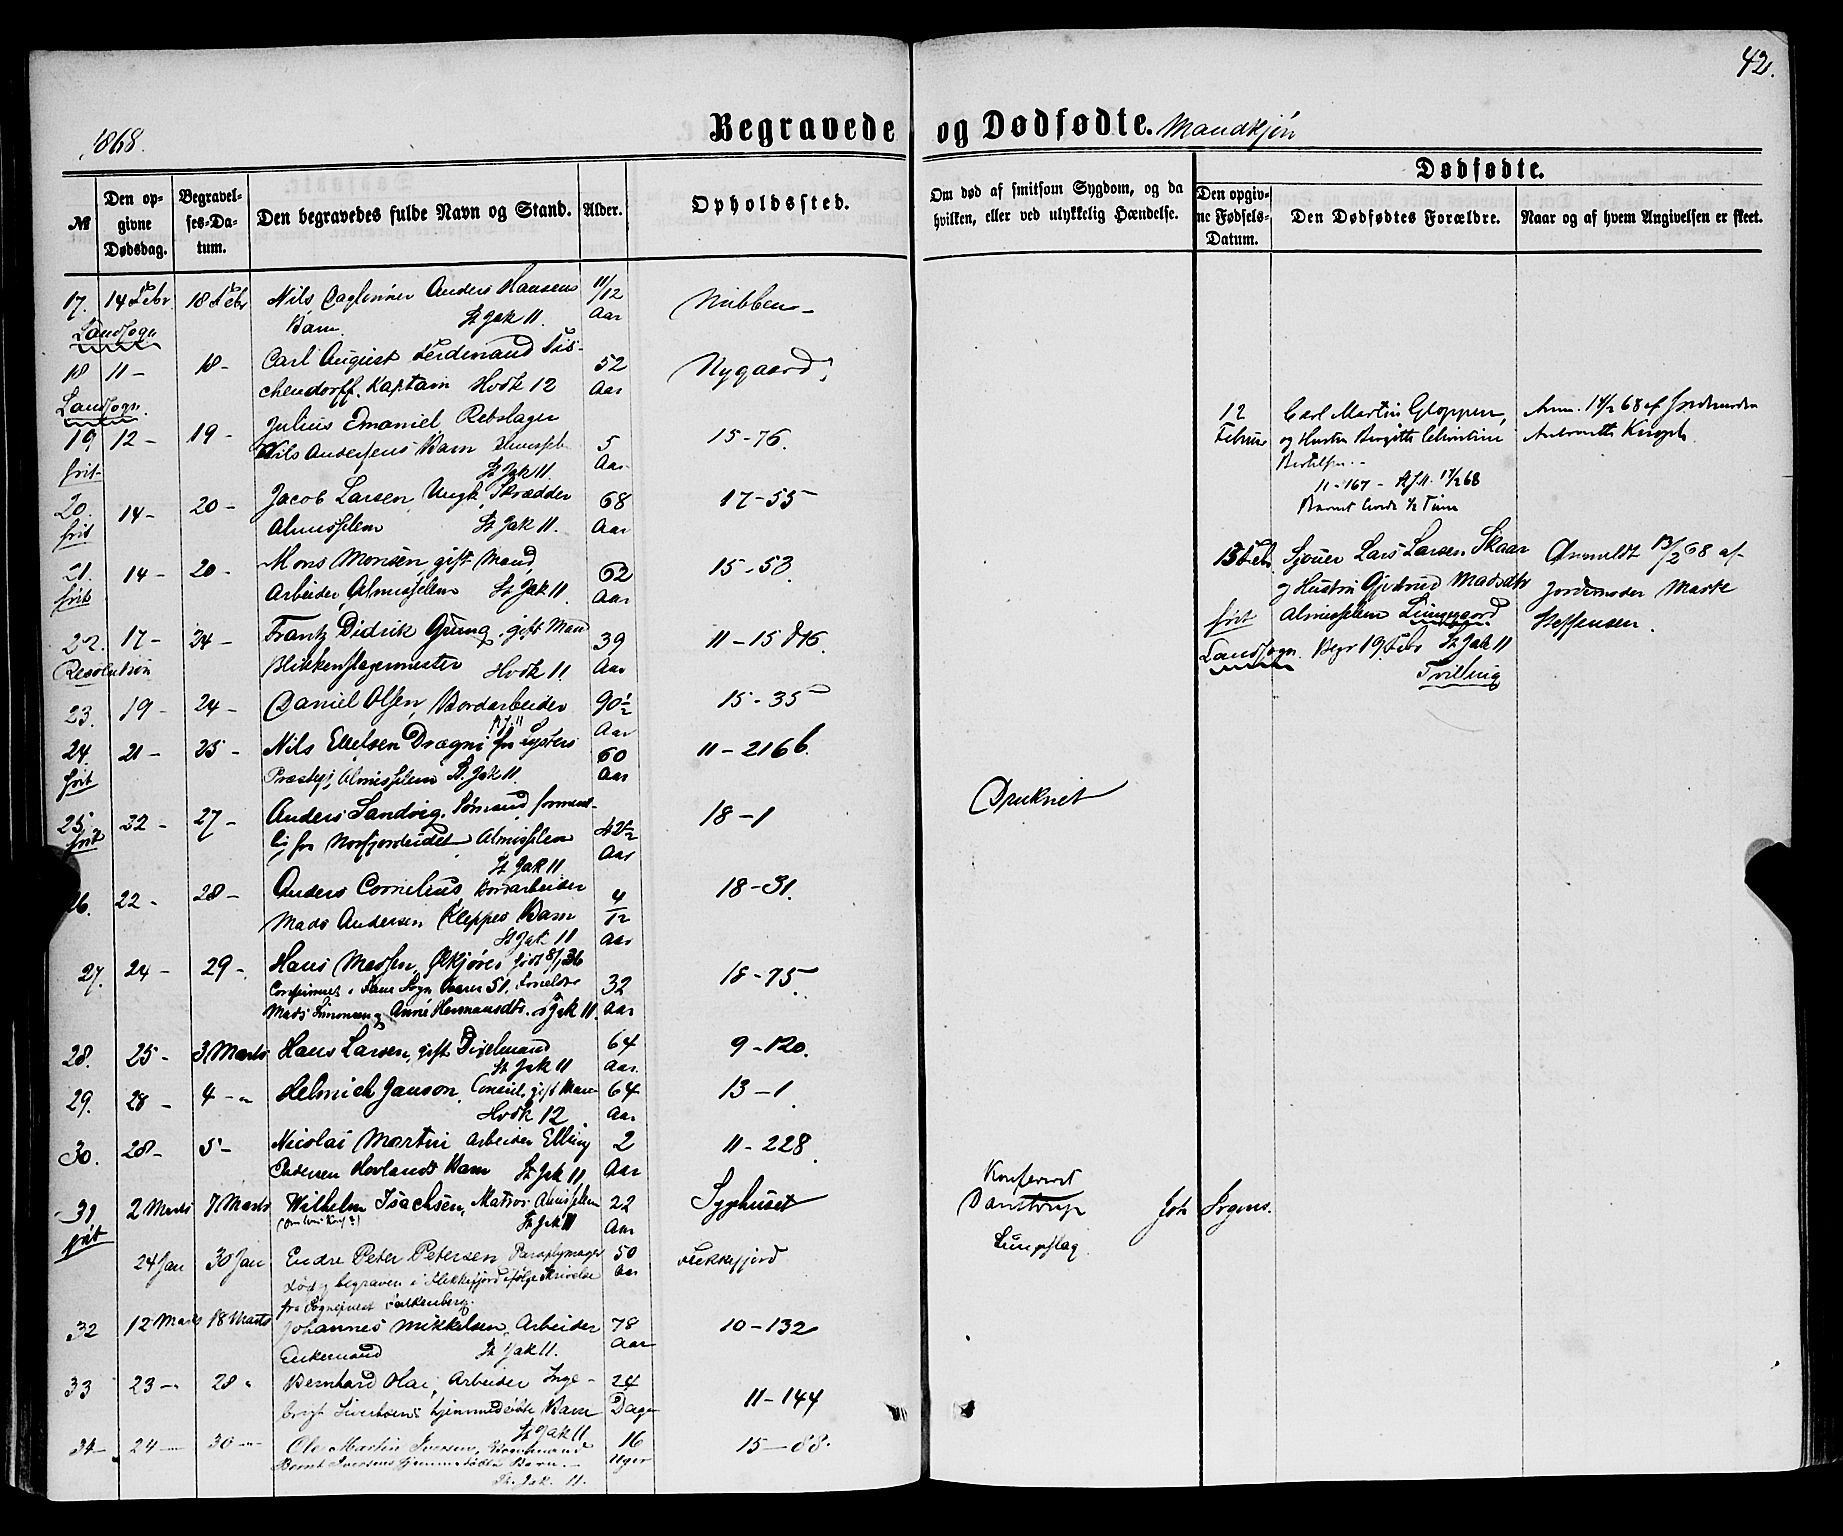 42.
1868.
Begravede og Dødfødte. Mandkjøn
Dødfødte.
№
Den op-
givne
Dødsdag.
Begravel-
ses-Da-
tum.
Den begravedes fulde Navn og Stand.
Alder.
Opholdssted.
Om død af smitsom Sygdom, og da
hvilken, eller ved ulykkelig Hændelse.
Den opgiv-
ne Fødsels-
Datum.
Den Dødfødtes Forældre.
Naar og af hvem Angivelsen er skeet.
17. 14 Febr 18 Febr Nils, Daglønner Anders Hansens 11/12 Aar Nubben
Landsogn Barn. St Jak 11.
18 11 - 18 - Carl August Ferdinand Tis- 52 Nygaard
Landsogn. chendorff. Kaptain Hvdk 12 Aar
19 12 - 19 - Julius Emaniel Rebslager
Nils Andersens Barn 5 15-76.
frit St Jak 11. Aar
20. 14 - 20 - Jacob Larsen, Ungk, Skrædder 68 17-55
frit Almisselem St Jak 11. Aar
21. 14 - 20 - Mons Monsen, gift Mand, 62 15-53
frit Arbeider, Almisselem St Jak 11 Aar
22. 17 - 24 - Frantz Didrik Grung, gift Mand 39 11-15
Resolution Blikkenslagermester Hvdk 11. Aar
23. 19 - 24 - Daniel Olsen, Bordarbeider 90½ Aar 15-35
24. 21 - 25 - Nils Ellefsen Drægni fra Lysters 60 11-216b.
frit Præstegj, Almisselem St. Jak 11. Aar
25 22 - 27 - Anders Sandvig, Sømand, forment- 42½ 18-1 Druknet
frit lig fra Nordfjordeidet Almisselem Aar
St Jak 11.
26. 22 - 28 - Anders Cornelius Bordarbeider 4/12 18-31.
Mads Andersen Kleppes Barn Aar
St Jak 11
27. 24 - 29 - Hans Madsen, født 8/1 36 32 18-75
Confirmeret i Fane Sogn 51. Forældre
Mads Simonsen og Anne Hermansdtr. St Jak 11. Aar
28. 25 - 3 Marts Hans Larsen, gift 64 9-120.
St Jak 11 Aar.
29. 28 - 4 - Helmich Janson, Consul, gift Man 64 13-1
Hvdk 12 Aar
30. 28 - 5 - Nicolai Martin Arbeider Elling 2 11-228.
Pedersen Hovlands Barn St Jak 11, Aar
31 2 Marts 7 Marts Wilhelm Isachsen, Matros Almisselem 22 Sygehuset
frit St Jak 11 Aar
Joh Irgens.
24 Jan 30 Jan Endre Peter Petersen, Paraplymager 50 Flekkefjord
død og begraven i Flekkefjord ifølge Skrivelse Aar
fra Sognepræst Falkenberg.
32 12 Marts 18 Marts Johannes Mikkelsen, Arbeider 78 10-132
Enkemand St Jak 11. Aar
33 23 - 28 - Bernhard Olai, Arbeider Inge- 24 11-144
brigt Sivertsens hjemmedøbte Barn Dage
St Jak 11
34 - 24 - 30 - Ole Martin Iversen, 16 15-88.
Bernt Iversens hjemmedøbte Barn. Uger
St. Jak. 11.
12 Carl Martin Gloppen,
Februar og Hustru Birgitte Christine
Bertelsen.
11-167 - 17/2 68
Anm. 17/2 68 af Jordemoder
13 Feb. Lars Larsen Skaar
og Hustru Gjertrud Madsdtr
frit Almisselem
Landsogn. Begr 19 Febr St Jak 11
Tvilling
Anmeldt 13/2 68 af
Jordemoder Marte
Steffensen.